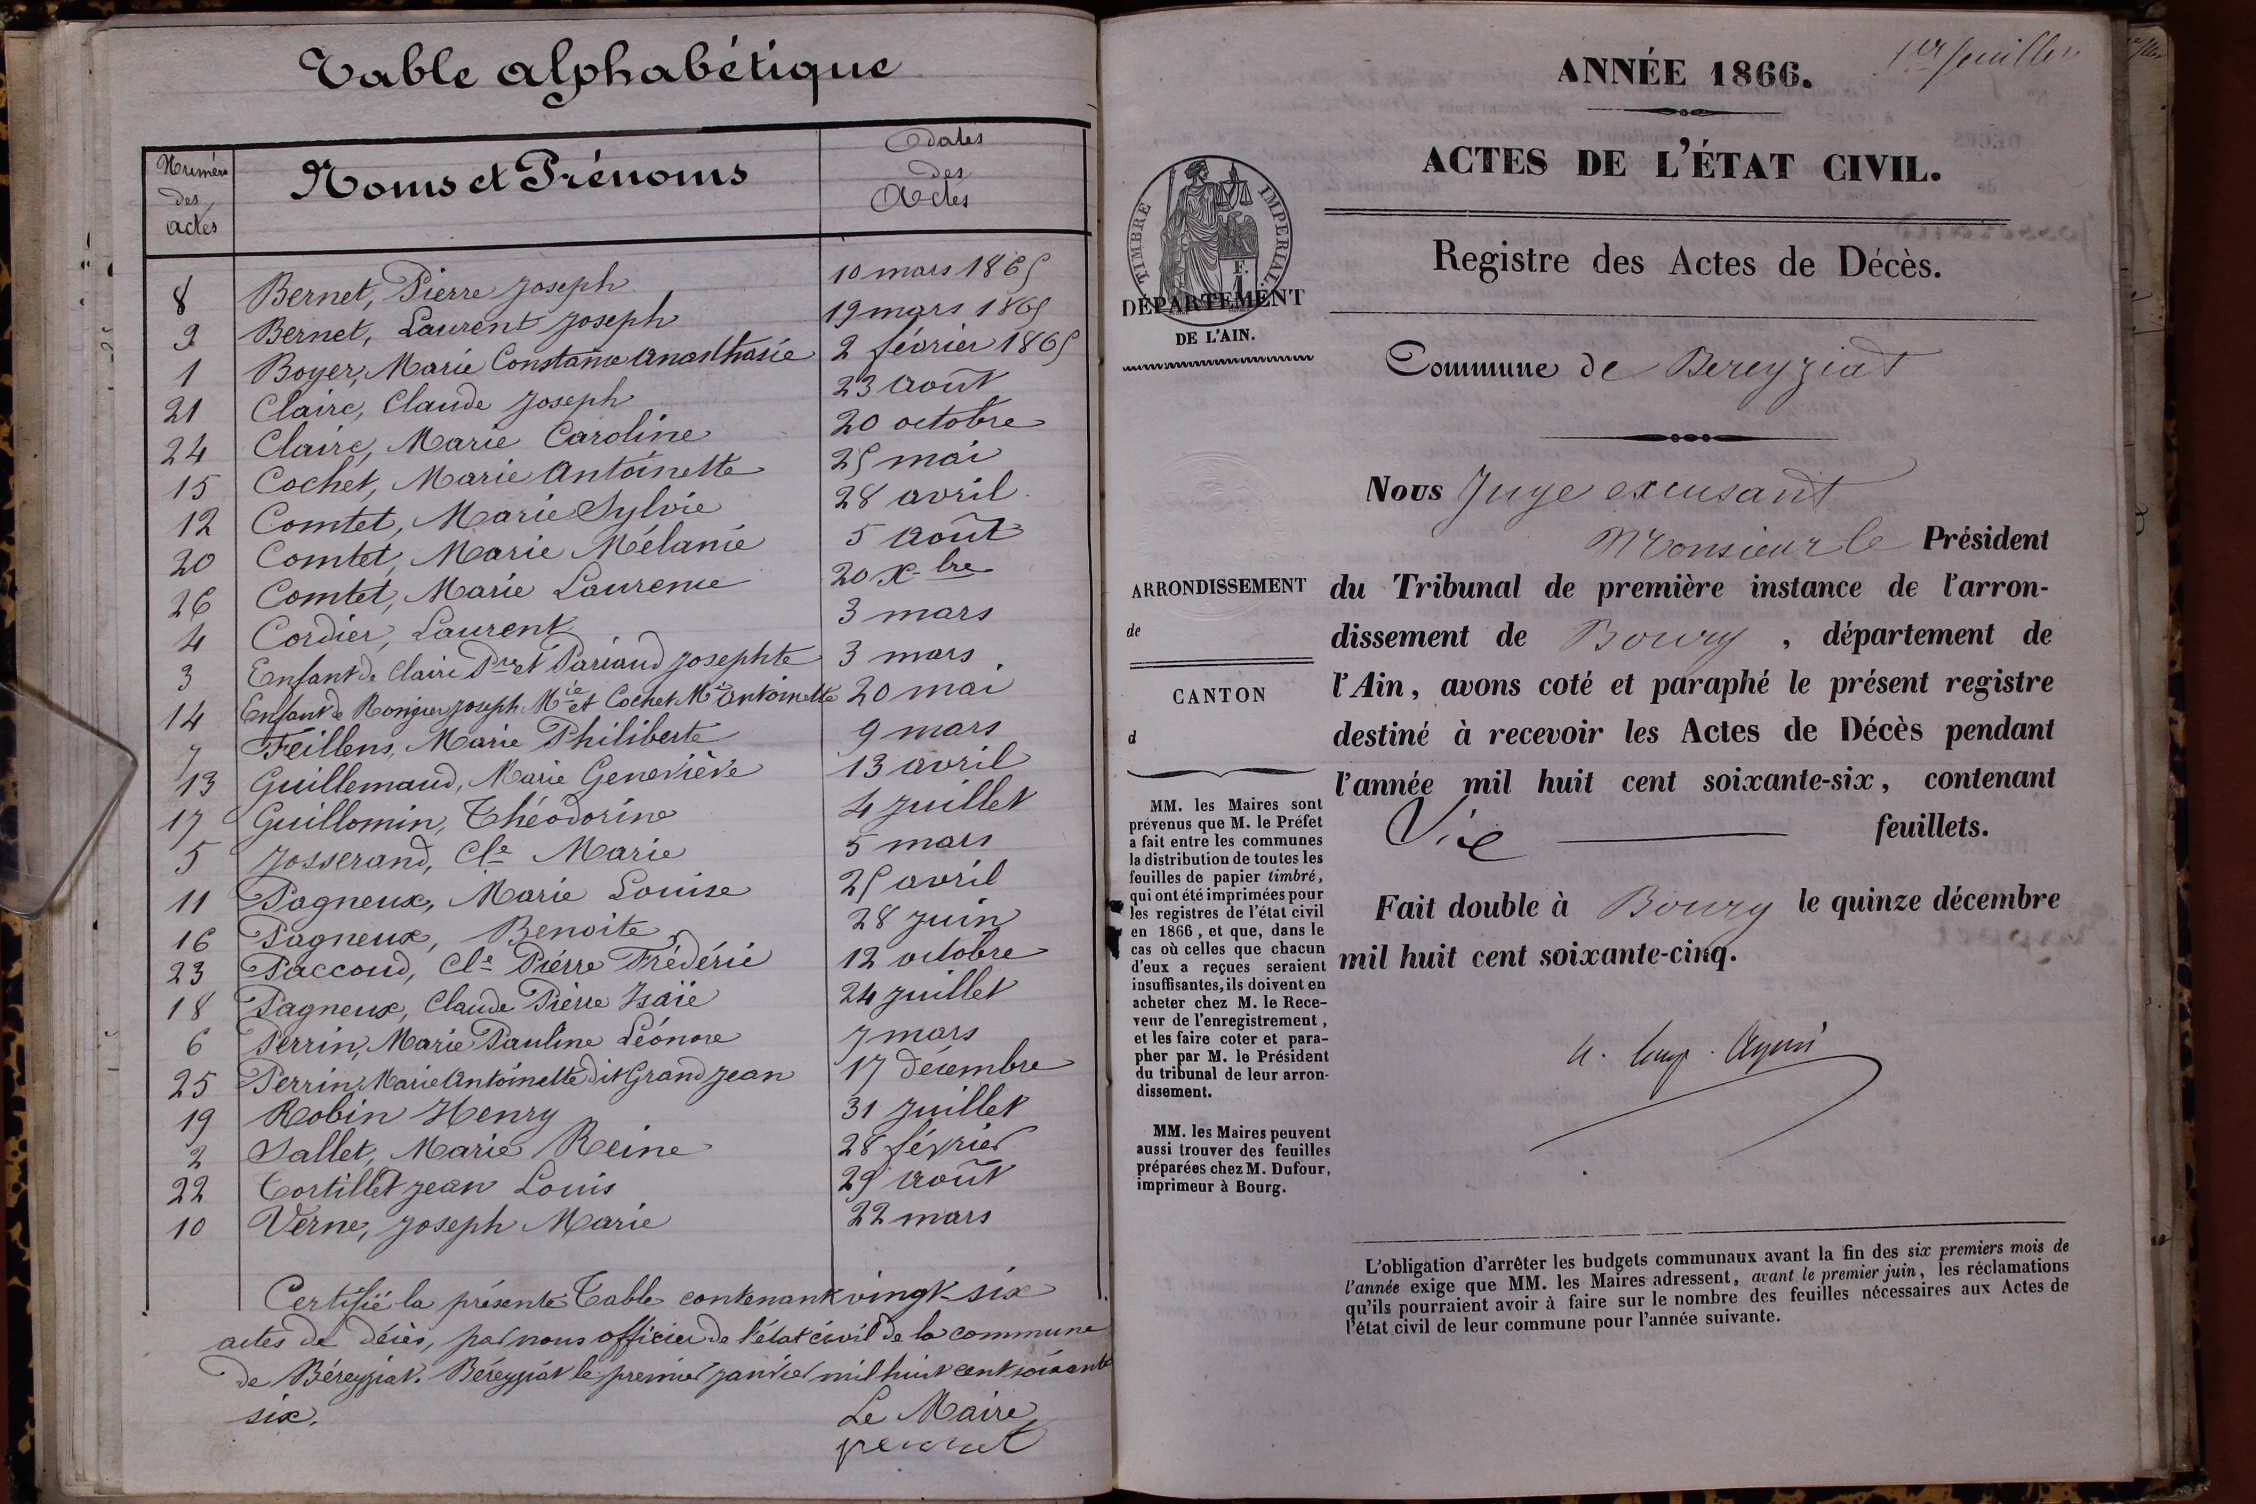 Table alphabétique
Numéro des actes
Noms et Prénoms
Dates des Actes
8 Bernet, Pierre Joseph 10 mars 1865
9 Bernet, Laurent Joseph 19 mars 1865
1 Boyer, Marie Constance Anasthasie 2 février 1865
21 Claire, Claude Joseph 23 août
24 Claire, Marie Caroline 20 octobre
15 Cochet, Marie Antoinette 25 mai
12 Comtet, Marie Sylvie 28 avril
20 Comtet, Marie Mélanie 5 août
26 Comtet, Marie Laurence 20 Xbre
4 Cordier, Laurent 3 mars
3 Enfant de Claire Pre et Pariaud Josephte 3 mars
14 Enfant de Rongier Joseph Mie et Cochet Mie Antoinette 20 mai
7 Feillens, Marie Philiberte 9 mars
13 Guillemaud, Marie Geneviève 13 avril
17 Guillomin, Théodorine 4 Juillet
5 Josserand, Cle Marie 5 mars
11 Pagneux, Marie Louise 25 avril
16 Pagneux, Benoite 28 juin
23 Paccoud, Cle Pierre Frédéric 12 octobre
18 Pagneux, Claude Pierre Isaïe 24 juillet
6 Perrin, Marie Pauline Léonore 7 mars
25 Perrin, Marie Antoinette dit Grand Jean 17 décembre
19 Robin Henry 31 Juillet
2 Sallet, Marie Reine 28 février
22 Tortillet Jean Louis 29 août
10 Verne, Joseph Marie 22 mars
Certifié la présente Table contenant vingt-six
actes de décès, par nous officier de l'état civil de la commune
de Béreyziat. Béreyziat le premier janvier mil huit cent soixante
six.
Le Maire
1er feuillet
ANNÉE 1866.
ACTES DE L'ÉTAT CIVIL.
TIMBRE IMPERIAL
DÉPARTEMENT
DE L'AIN.
Registre des Actes de Décès.
Commune de Bereyziat
Nous Juge excusant
Monsieur le Président
ARRONDISSEMENT
de
CANTON
d
du Tribunal de première instance de l'arron-
dissement de Bourg, département de
l'Ain, avons coté et paraphé le présent registre
destiné à recevoir les Actes de Décès pendant
l'année mil huit cent soixante-six, contenant
Dix feuillets.
Fait double à Bourg le quinze décembre
mil huit cent soixante-cinq.
MM. les Maires sont
prévenus que M. le Préfet
a fait entre les communes
la distribution de toutes les
feuilles de papier timbré,
qui ont été imprimées pour
les registres de l'état civil
en 1866, et que, dans le
cas où celles que chacun
d'eux a reçues seraient
insuffisantes, ils doivent en
acheter chez M. le Rece-
veur de l'enregistrement,
et les faire coter et para-
pher par M. le Président
du tribunal de leur arron-
dissement.
MM. les Maires peuvent
aussi trouver des feuilles
préparées chez M. Dufour,
imprimeur à Bourg.
L'obligation d'arrêter les budgets communaux avant la fin des six premiers mois de
l'année exige que MM. les Maires adressent, avant le premier juin, les réclamations
qu'ils pourraient avoir à faire sur le nombre des feuilles nécessaires aux Actes de
l'état civil de leur commune pour l'année suivante.